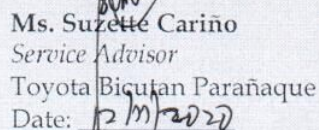 Ms. Suzette Cariño
Service Advisor
Toyota Bicutan Parañaque
Date: 2020